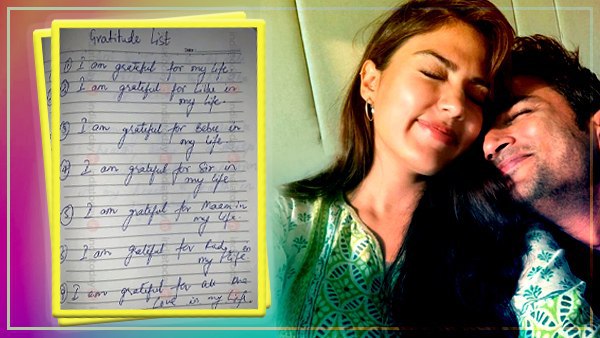 Gratitude List
Date:
① I am grateful for my life.
② I am grateful for Lillu in
my life.
③ I am grateful for Bebu in
my life.
④ I am grateful for Sir in
my life
⑤ I am grateful for Maam in
my life.
⑥ I am grateful for Fudge in
my life.
⑦ I am grateful for all the
Love in my life.